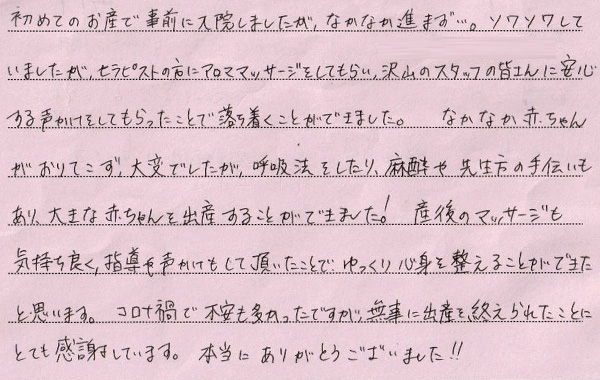 初めてのお産で事前に入院しましたが、なかなか進まず…。ソワソワして
いましたが、セラピストの方にアロママッサージをしてもらい、沢山のスタッフの皆さんに安心
する声かけをしてもらったことで落ち着くことができました。 なかなか赤ちゃん
がおりてこず、大変でしたが、呼吸法をしたり、麻酔や先生方の手伝いも
あり、大きな赤ちゃんを出産することができました! 産後のマッサージも
気持ち良く、指導や声かけもして頂いたことで、ゆっくり心身を整えることができた
と思います。 コロナ禍で不安も多かったですが、無事に出産を終えられたことに
とても感謝しています。 本当にありがとうございました!!